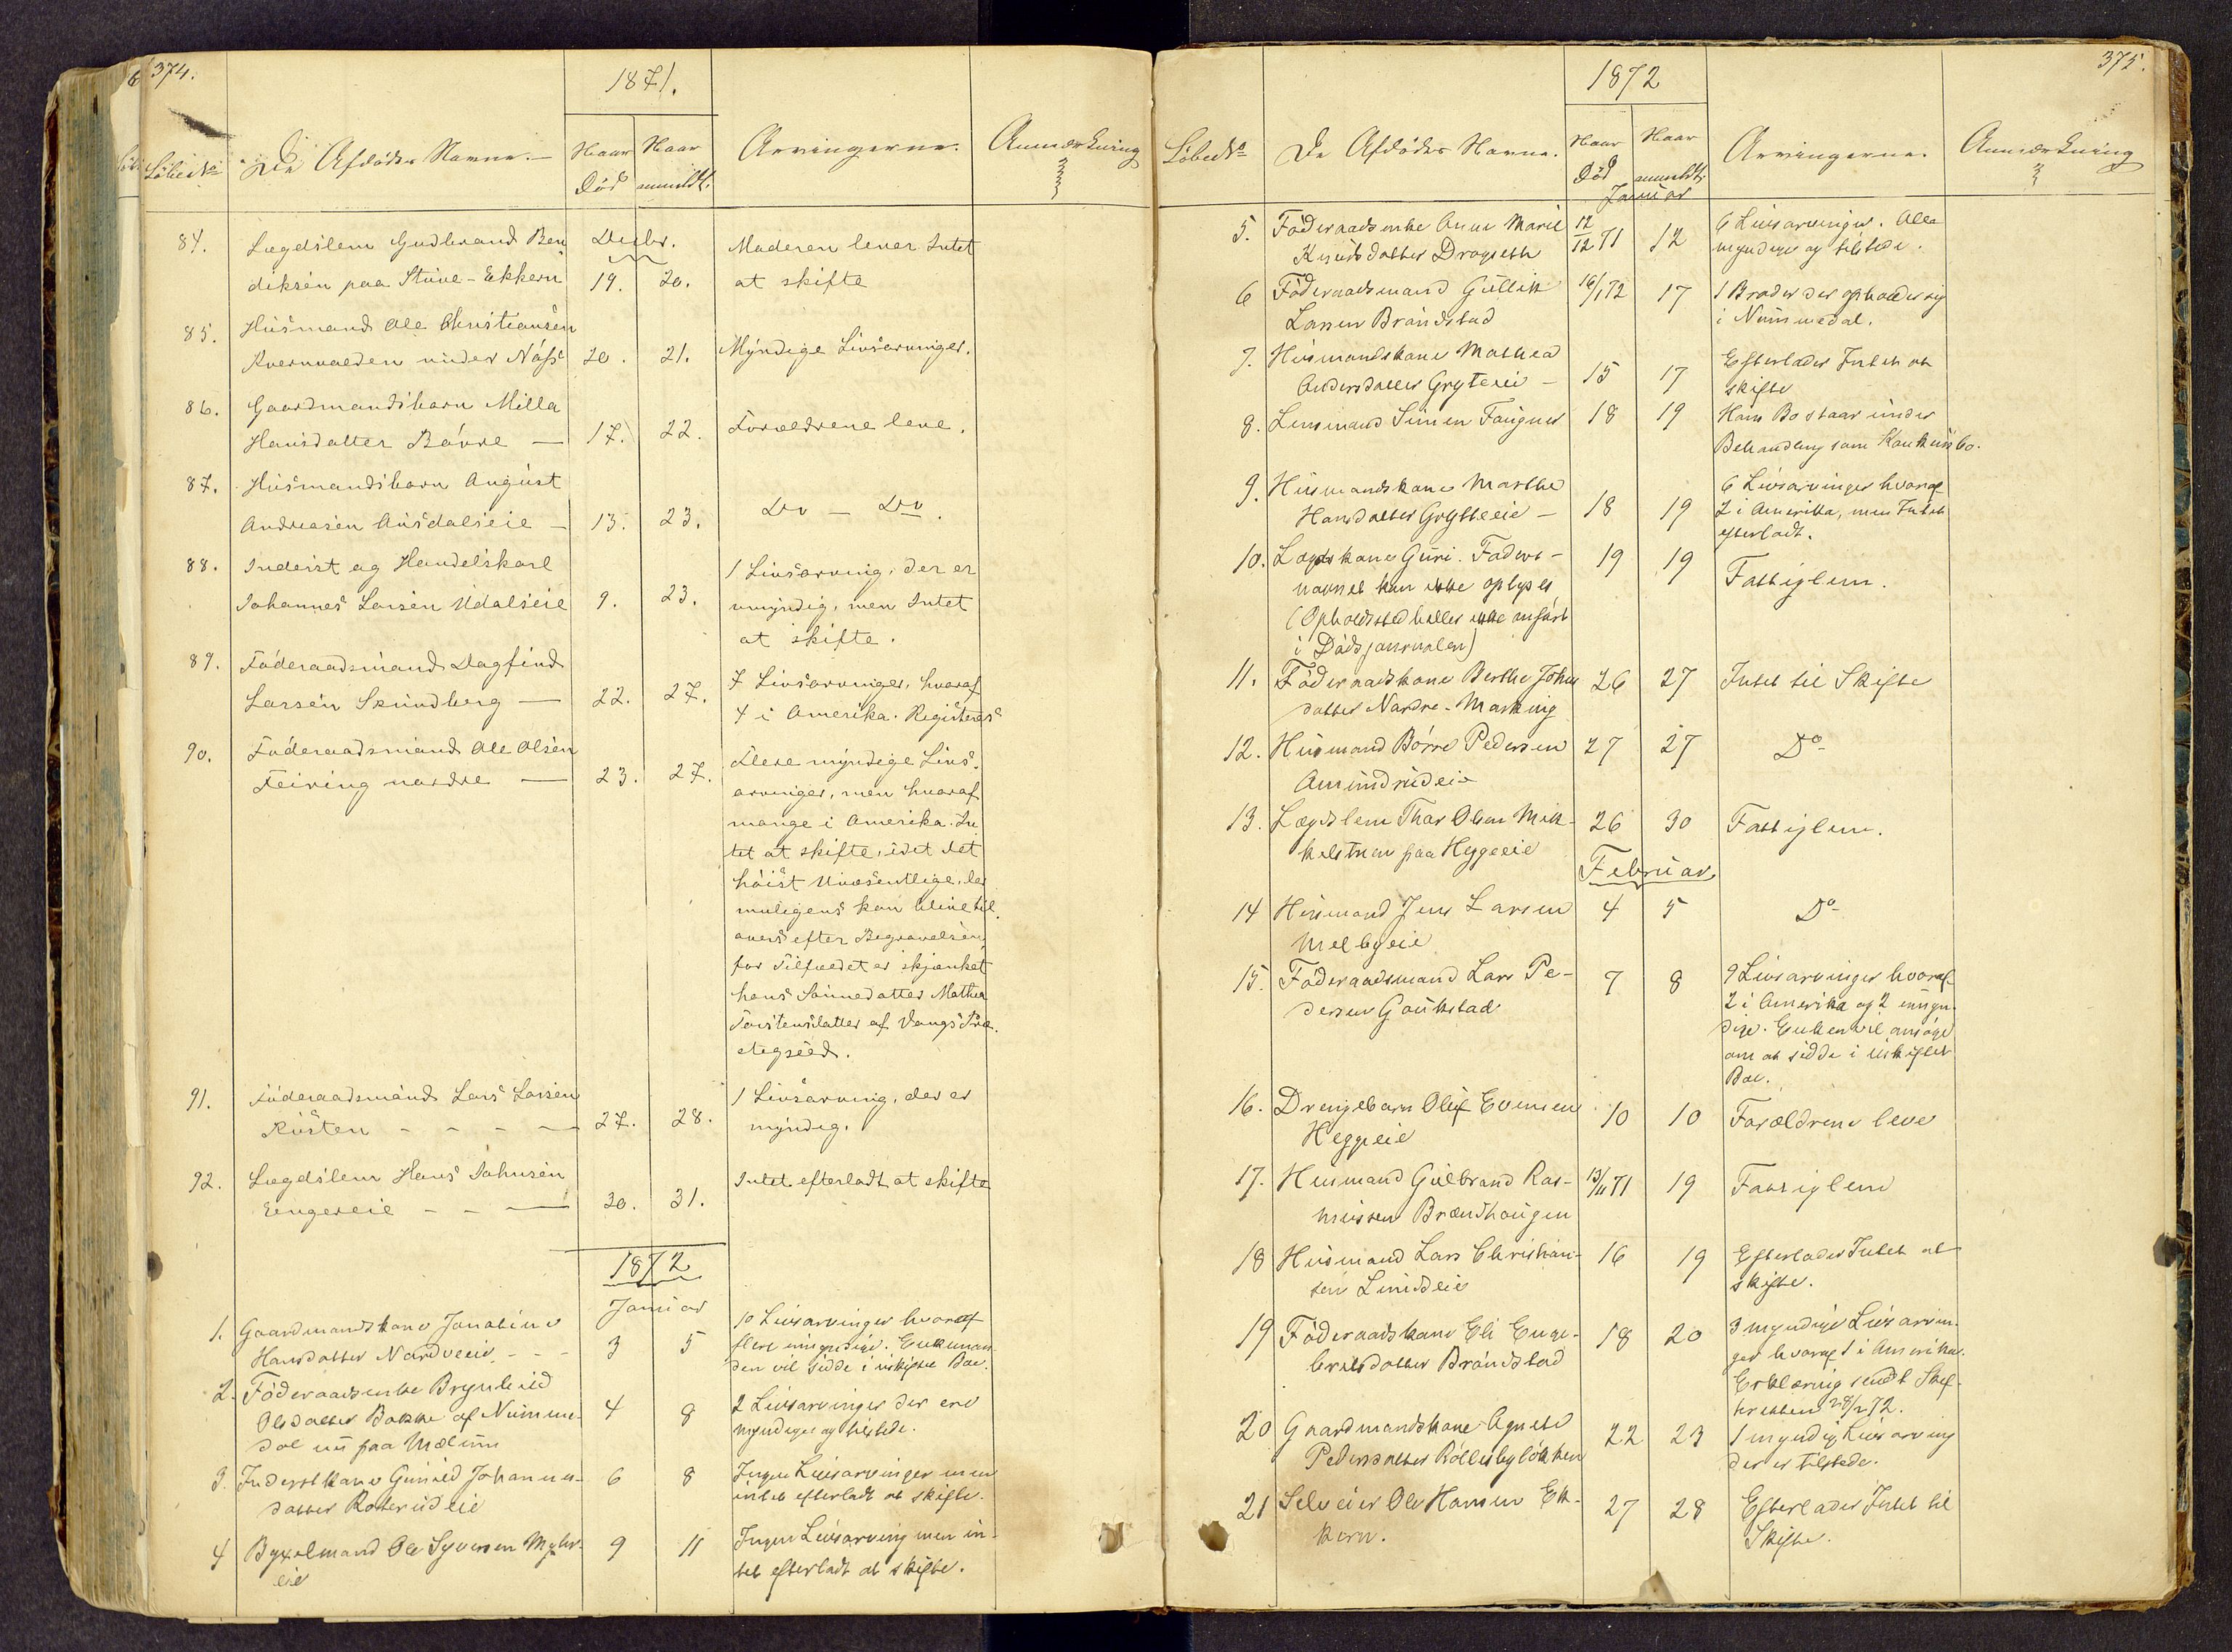 374.
1871.
Löbe No
De Afdödes Navne.
Naar Död
Naar anmeldt.
Arvingerne.
Anmærkning
84.
Lægdslem Gudbrand Ben
diksen paa Stuve-Ekkern
Decbr.
19.
20.
Moderen lever Intet
at skifte
85.
Husmand Ole Christiansen
Kvernvolden under Næss
20.
21.
Myndige Livsarvinger.
86.
Gaardmandsbarn Milla
Hansdatter Bövre —
17.
22.
Forældrene leve.
87.
Husmandsbarn August
Andreasen Ausdalseie —
13.
23.
Do — Do.
88.
Inderst og Handelskarl
Johannes Larsen Udalseie
9.
23.
1 Livsarving, der er
umyndig, men Intet
at skifte.
89.
Föderaadsmand Dagfind
Larsen Skrindberg —
22.
27.
7 Livsarvinger, hvoraf
4 i Amerika. Registeres
90.
Föderaadsmand Ole Olsen
Feiring nordre —
23.
27.
Flere myndige Livs-
arvinger, men hvoraf
mange i Amerika. In
tet at skifte, idet det
höist Uvæsentlige, der
muligens kan blive til
overs efter Begravelsen,
for Tilfældet er skjænket
hans Sönnedatter Mathea
Torstensdatter af Vangs Præ-
stegjeld.
91.
Föderaadsmand Lars Larsen
Kusten - - - —
27.
28.
1 Livsarving, der er
myndig.
92.
Lægdslem Hans Johnsen
Engerseie - - —
30.
31.
Intet efterladt at skifte
1872
Januar
1.
Gaardmandskone Jonatine
Hansdatter Nordveeie - - -
3
5
10 Livsarvinger hvoraf
flere umyndige. Enkeman-
den vil sidde i uskiftet Boe.
2.
Föderaadsenke Brynhild
Olsdatter Bakke af Numme-
dal nu paa Mælum
4
8
2 Livsarvinger der ere
myndige og tilstede.
3.
Inderstkone Gunild Johannes-
datter Roterudeie
6
8
Ingen Livsarvinger men
intet efterladt at skifte.
4
Bygselmand Ole Syversen Myhr-
eie
9
11
Ingen Livsarving men in-
tet efterladt at skifte.
375.
1872
Löbe No
De Afdödes Navne.
Naar Död
Naar anmeldt.
Arvingerne.
Anmærkning
Januar
5.
Föderaadsenke Anne Marie
Knudsdatter Dragseth
12/12 71
12
6 Livsarvinger. Alle
myndige og tilstede.
6
Föderaadsmand Gullik
Larsen Brændstad
16/1 72
17
1 Broder der opholder sig
i Nummedal.
7.
Husmandskone Mathea
Andersdatter Gryteeie —
15
17
Efterlader Intet at
skifte
8.
Lensmand Simen Faugner
18
19
Hans Bo staar under
Behandling som Konkursbo.
9.
Husmandskone Marthe
Hansdatter Grytteeie —
18
19
6 Livsarvinger hvoraf
2 i Amerika, men Intet
efterladt.
10.
Lægdskone Guri. Faders-
navnet kan ikke oplyses
(Opholdssted heller ikke anfört
i Dödsjournalen)
19
19
Fattiglem.
11.
Föderaadskone Berthe Johns
datter Nordre-Morking
26
27
Intet til Skifte
12.
Husmand Börre Pedersen
Amundrudeie
27
27
Do
13.
Lægdslem Thor Olsen Mik-
kelstuen paa Heggeeie
26
30
Fattiglem.
Februar
14
Husmand Jens Larsen
Melbyeie
4
5
Do
15.
Föderaadsmand Lars Pe-
dersen Gaukstad
7
8
9 Livsarvinger hvoraf
2 i Amerika og 2 umyn-
dige. Enken vil ansöge
om at sidde i uskiftet
Boe.
16.
Drengebarn Oluf Evensen
Heggeeie
10
10
Forældrene leve
17.
Husmand Gulbrand Ras-
mussen Brændhaugen
13/11 71
19
Fattiglem
18
Husmand Lars Christian-
sen Lundeie
16
19
Efterlader Intet at
skifte.
19
Föderaadskone Eli Enge-
bretsdatter Brændstad
18
20
3 myndige Livsarvin-
ger hvoraf 1 i Amerika.
Erklæring sendt Skif-
teretten 28/2 72.
20
Gaardmandskone Agnete
Pedersdatter Kollesbylökken
22
23
1 myndig Livsarving
der er tilstede.
21
Selveier Ole Hansen Ek-
kern.
27
28
Efterlader Intet til
Skifte.